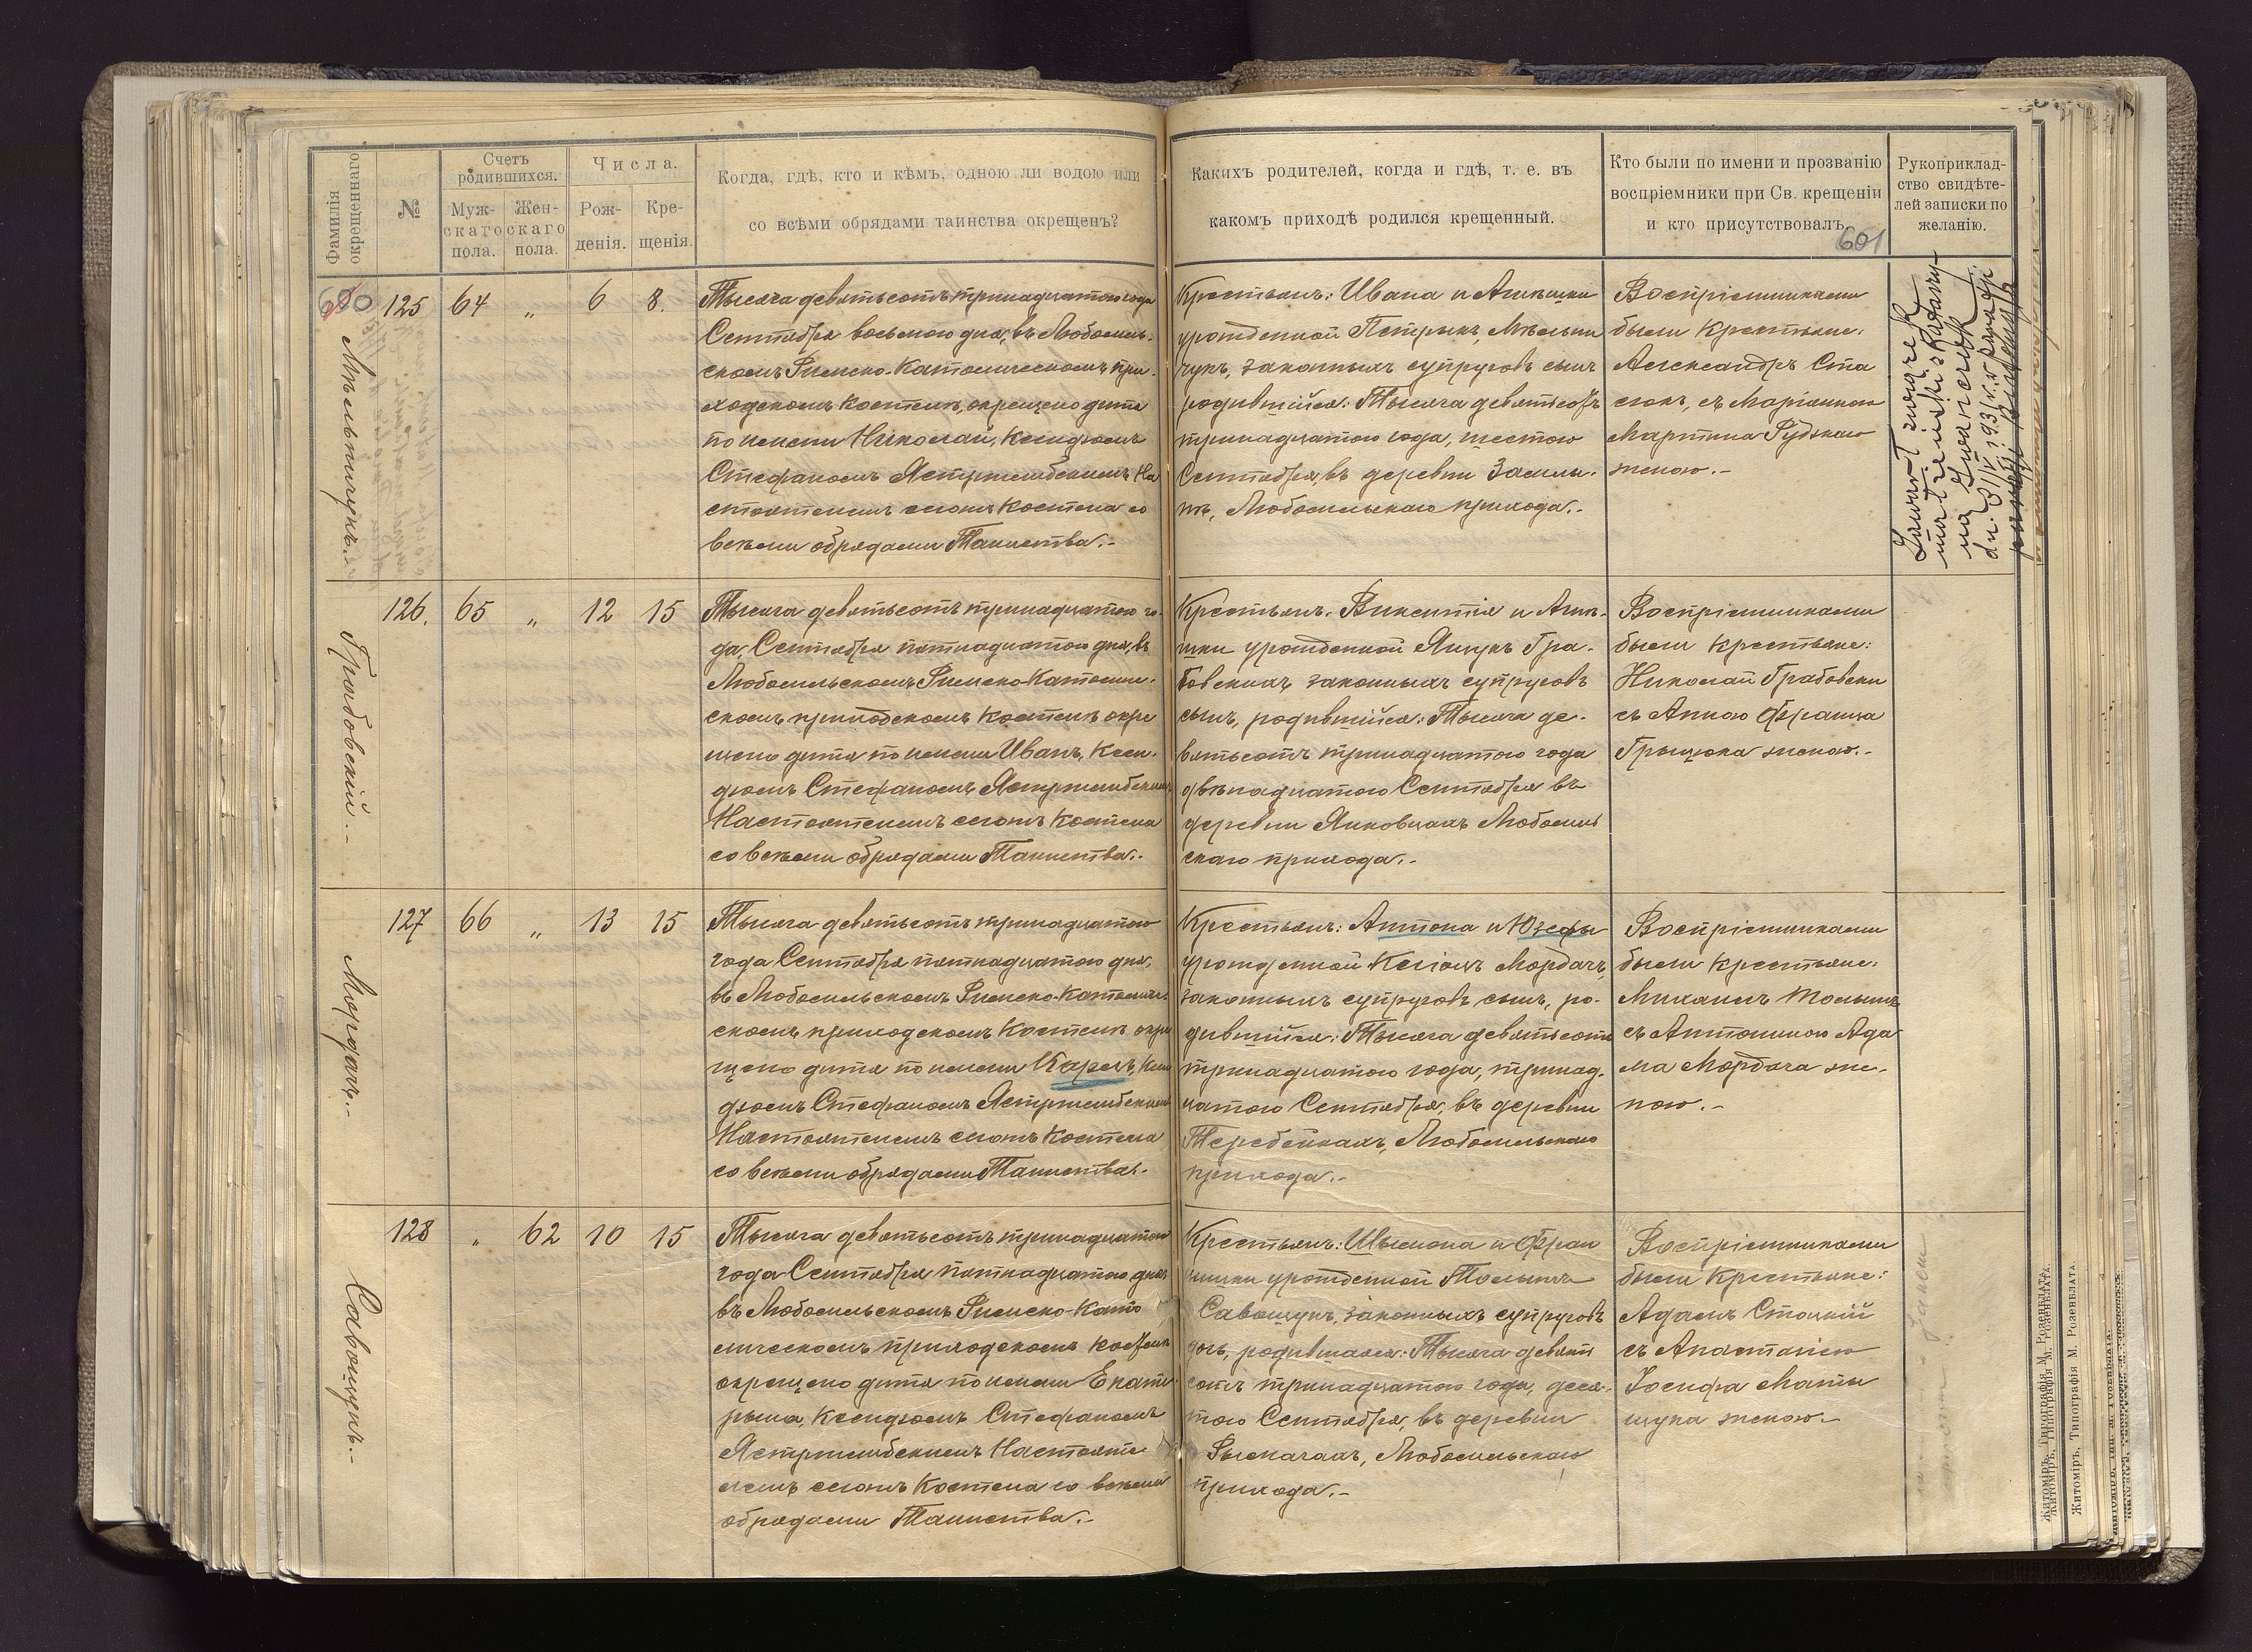 Фамилія окрещеннаго
№
Счетъ родившихся.
Мужскаго пола.
Женскаго пола.
Числа.
Рожденія.
Крещенія.
Когда, гдѣ, кто и кѣмъ, одною ли водою или
со всѣми обрядами таинства окрещенъ?
Какихъ родителей, когда и гдѣ, т. е. въ
какомъ приходѣ родился крещенный.
Кто были по имени и прозванію
воспріемники при Св. крещеніи
и кто присутствовалъ.
Рукоприклад-
ство свидѣте-
лей записки по
желанію.
601
600
Мѣльничукъ.-
125 64 " 6 8.
Тысяча девятьсотъ тринадцатого года
Сентября восьмого дня, въ Любомль-
скомъ Римско-Католическомъ при-
ходскомъ Костелѣ, окрещено дитя
по имени Николай, Ксендзомъ
Стефаномъ Ястржембскимъ На
стоятелемъ сегожъ Костела со
всѣми обрядами Таинства.-
Крестьянъ: Ивана и Агнѣшки
урожденной Петрыкъ, Мѣльни
чукъ, законныхъ супруговъ сынъ
родившійся: Тысяча девятьсотъ
тринадцатого года, шестого
Сентября, въ деревни
Любомльскаго прихода.-
Воспріемниками
были Крестьяне:
Александръ Ста
сюкъ, съ Маріанною
Мартина Рудзкаго
женою.-
Zawarł związek
małżeński z Katarzy-
ną
Грабовскій.-
126. 65 " 12 15
Тысяча девятьсотъ тринадцатого го-
да, Сентября пятнадцатого дня, въ
Любомльскомъ Римско-Католиче-
скомъ приходскомъ Костелѣ окре
щено дитя по имени Иванъ, Ксен-
дзомъ Стефаномъ Ястржембскимъ
Настоятелемъ сегожъ Костела
со всѣми обрядами Таинства.-
Крестьянъ: Викентія и Агнѣ-
шки урожденной Ящукъ Гра-
бовскихъ законныхъ супруговъ
сынъ, родившійся: Тысяча де-
вятьсотъ тринадцатого года
двѣнадцатого Сентября въ
деревни Янковцахъ Любомль
скаго прихода.-
Воспріемниками
были Крестьяне:
Николай Грабовски
съ Анною Франца
Грыцюка женою.-
Мордачъ.-
127 66 " 13 15
Тысяча девятьсотъ тринадцатого
года Сентября пятнадцатого дня,
въ Любомльскомъ Римско-Католиче-
скомъ приходскомъ Костелѣ окре
щено дитя по имени Карлъ, Ксен
дзомъ Стефаномъ Ястржембскимъ
Настоятелемъ сегожъ Костела
со всѣми обрядами Таинства.-
Крестьянъ: Антона и Юзефы
урожденной Мордачъ,
законныхъ супруговъ сынъ, ро-
дившійся: Тысяча девятьсотъ
тринадцатого года, тринад-
цатого Сентября, въ деревни
Теребейкахъ, Любомльскаго
прихода.-
Воспріемниками
были Крестьяне:
Михаилъ
съ Антониною Ада
ма Мордача же-
ною.-
Савощукъ.-
128 " 62 10 15
Тысяча девятьсотъ тринадцатого
года Сентября пятнадцатого дня
въ Любомльскомъ Римско-Като
лическомъ приходскомъ Костелѣ
окрещено дитя по имени Екате
рына, Ксендзомъ Стефаномъ
Ястржембскимъ Настояте
лемъ сегожъ Костела со всѣми
обрядами Таинства.-
Крестьянъ: Шымона и Фран
цишки урожденной
Савощукъ, законныхъ супруговъ
дочь, родившаяся: Тысяча девять
сотъ тринадцатого года, деся-
того Сентября, въ деревни
Рымачахъ, Любомльскаго
прихода.-
Воспріемниками
были Крестьяне:
Адамъ Стоцкій
съ Анастасіею
Іосифа Маты
щука женою.-
Житоміръ, Типографія М. Розенблата.
Житоміръ, Типографія М. Розенблата.